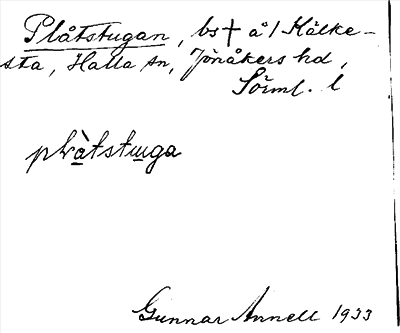 Plåtstugan, bs† å/ Kälke-
sta, Halla sn, Jönåkers hd,
Sörml. l
plàtstuga
Gunnar Annell 1933